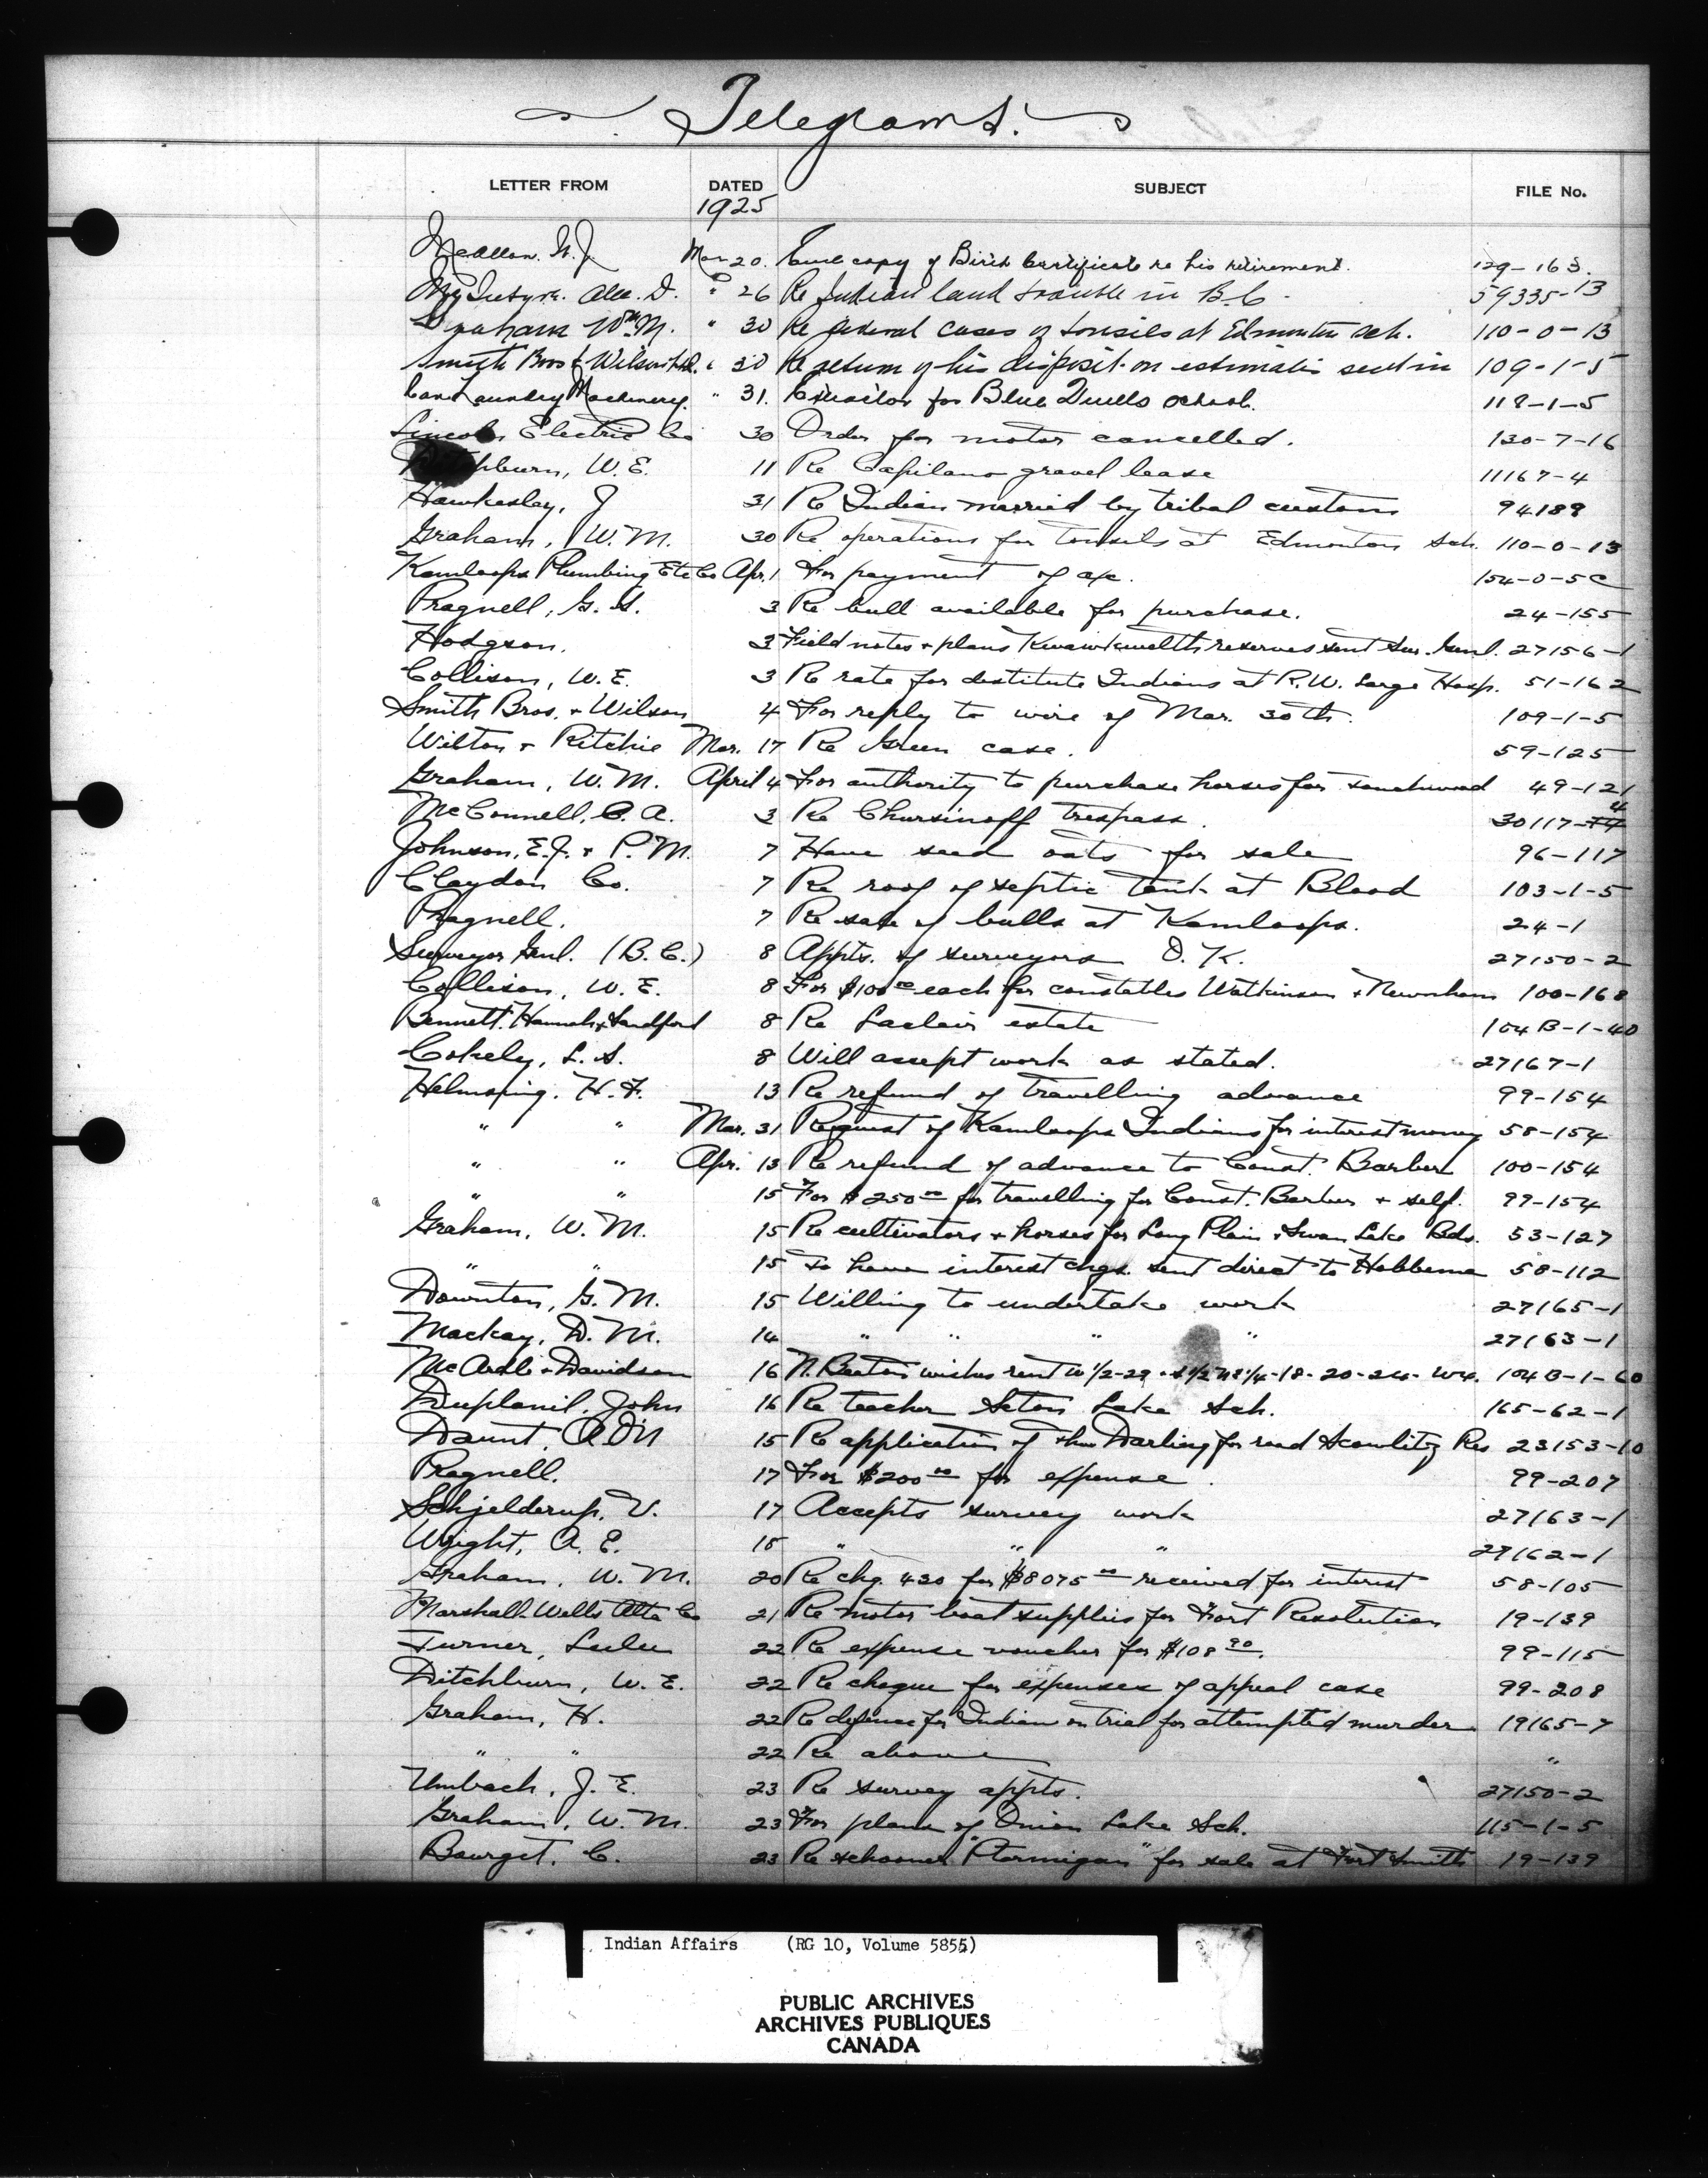 Telegrams.
LETTER FROM DATED SUBJECT FILE No.
1925
McAllan. W. J. Mar 20. Encl copy of Birth Certificate re his retirement. 129-163.
McIntyre. Alex. D. " 26 Re Indian land trouble in B.C. 59335-13
Graham Wm M. " 30 Re several cases of tonsils at Edmonton sch. 110-0-13
Smith Bros & Wilson Ltd. " 30 Re return of his deposit on estimates sent in 109-1-5
Can. Laundry Machinery. " 31. for Blue Quills School. 118-1-5
Lincoln Electric Co 30 Order for motor cancelled. 130-7-16
Ditchburn, W. E. 11 Re Capilano gravel lease 11167-4
Hawkesley, J 31 Re Indian married by tribal custom 94189
Graham, W. M. 30 Re operations for tonsils at Edmonton Sch. 110-0-13
Kamloops Plumbing Etc Co Apr. 1 For payment of a/c. 154-0-5C
Pragnell, G. S. 3 Re bull available for purchase. 24-155
Hodgson. 3 Field notes + plans Kwawkewelth reserves sent Sur. Genl. 27156-1
Collison, W. E. 3 Re rate for destitute Indians at R. W. Large Hosp. 51-162
Smith Bros. + Wilson 4 For reply to wire of Mar. 30th. 109-1-5
Wilton + Ritchie Mar. 17 Re Green case. 59-125
Graham, W. M. April 4 For authority to purchase horses for 49-121
McConnell, C. A. 3 Re Chursinoff trespass. 30117-4
Johnson, E. J. + P. M. 7 Have seed oats for sale 96-117
Claydon Co. 7 Re roof of septic tank at Blood 103-1-5
Pragnell. 7 Re sale of bulls at Kamloops. 24-1
Surveyor Genl. (B. C.) 8 Appts. of surveyors O. K. 27150-2
Collison, W. E. 8 For $100.00 each for constables Watkinson + Newnham 100-168
Bennett, Hannah, + Sandford 8 Re Laclair estate 104B-1-40
Cokely, L. S. 8 Will accept work as stated. 27167-1
Helmsing. H. F. 13 Re refund of travelling advance 99-154
" " Mar. 31 Request of Kamloops Indians for interest money 58-154
" " Apr. 13 Re refund of advance to Const. Barber 100-154
" " 15 For $250.00 for travelling for Const. Barber + self. 99-154
Graham, W. M. 15 Re cultivators + horses for Long Plain + Swan Lake Bds. 53-127
" " 15 To have interest chqs. sent direct to Hobbema 58-112
Downton, G. M. 15 Willing to undertake work 27165-1
Mackay, D. M. 14 " " " " 27163-1
McArdle + Davidson 16 N. Beaton wishes rent W 1/2-29 + S 1/2 NE 1/4-18-20-24-W4. 104B-1-60
Duplanil, John 16 Re teacher Seton Lake Sch. 165-62-1
Daunt, A O'N 15 Re application of Darling for road Scowlitz Res 23153-10
Pragnell. 17 For $200.00 for expense. 99-207
Schjelderup, V. 17 Accepts survey work 27163-1
Wright, A. E. 18 " " " 27162-1
Graham, W. M. 20 Re chq. 430 for $8075.00 received for interest 58-105
Marshall-Wells Alta Co 21 Re motor boat supplies for Fort Resolution 19-139
Turner, Lulu 22 Re expense voucher for $108.90. 99-115
Ditchburn, W. E. 22 Re cheque for expenses of appeal case 99-208
Graham, H. 22 Re defence for Indian on trial for attempted murder 19165-7
" " 22 Re above "
Umbach, J. E. 23 Re survey appts. 27150-2
Graham, W. M. 23 For plans of Onion Lake Sch. 115-1-5
Bourget, C. 23 Re schooner "Ptarmigan" for sale at Fort Smith 19-139
Indian Affairs (RG 10, Volume 5855)
PUBLIC ARCHIVES
ARCHIVES PUBLIQUES
CANADA